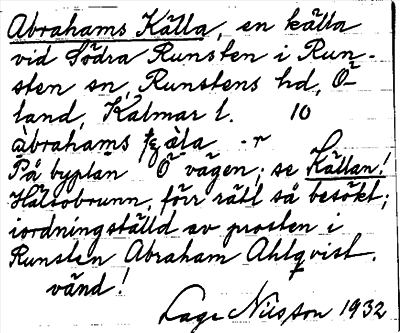 Abrahams Källa, en källa
vid Södra Runsten i Run-
sten sn, Runstens hd, Ö
land, Kalmar l. 10
àbrahams ɕäla -r
På byplan Ö vägen; se Källan!
Hälsobrunn, förr rätt så besökt;
iordningställd av prosten i
Runsten Abraham Ahlqvist.
vänd!
Lage Nilsson 1932